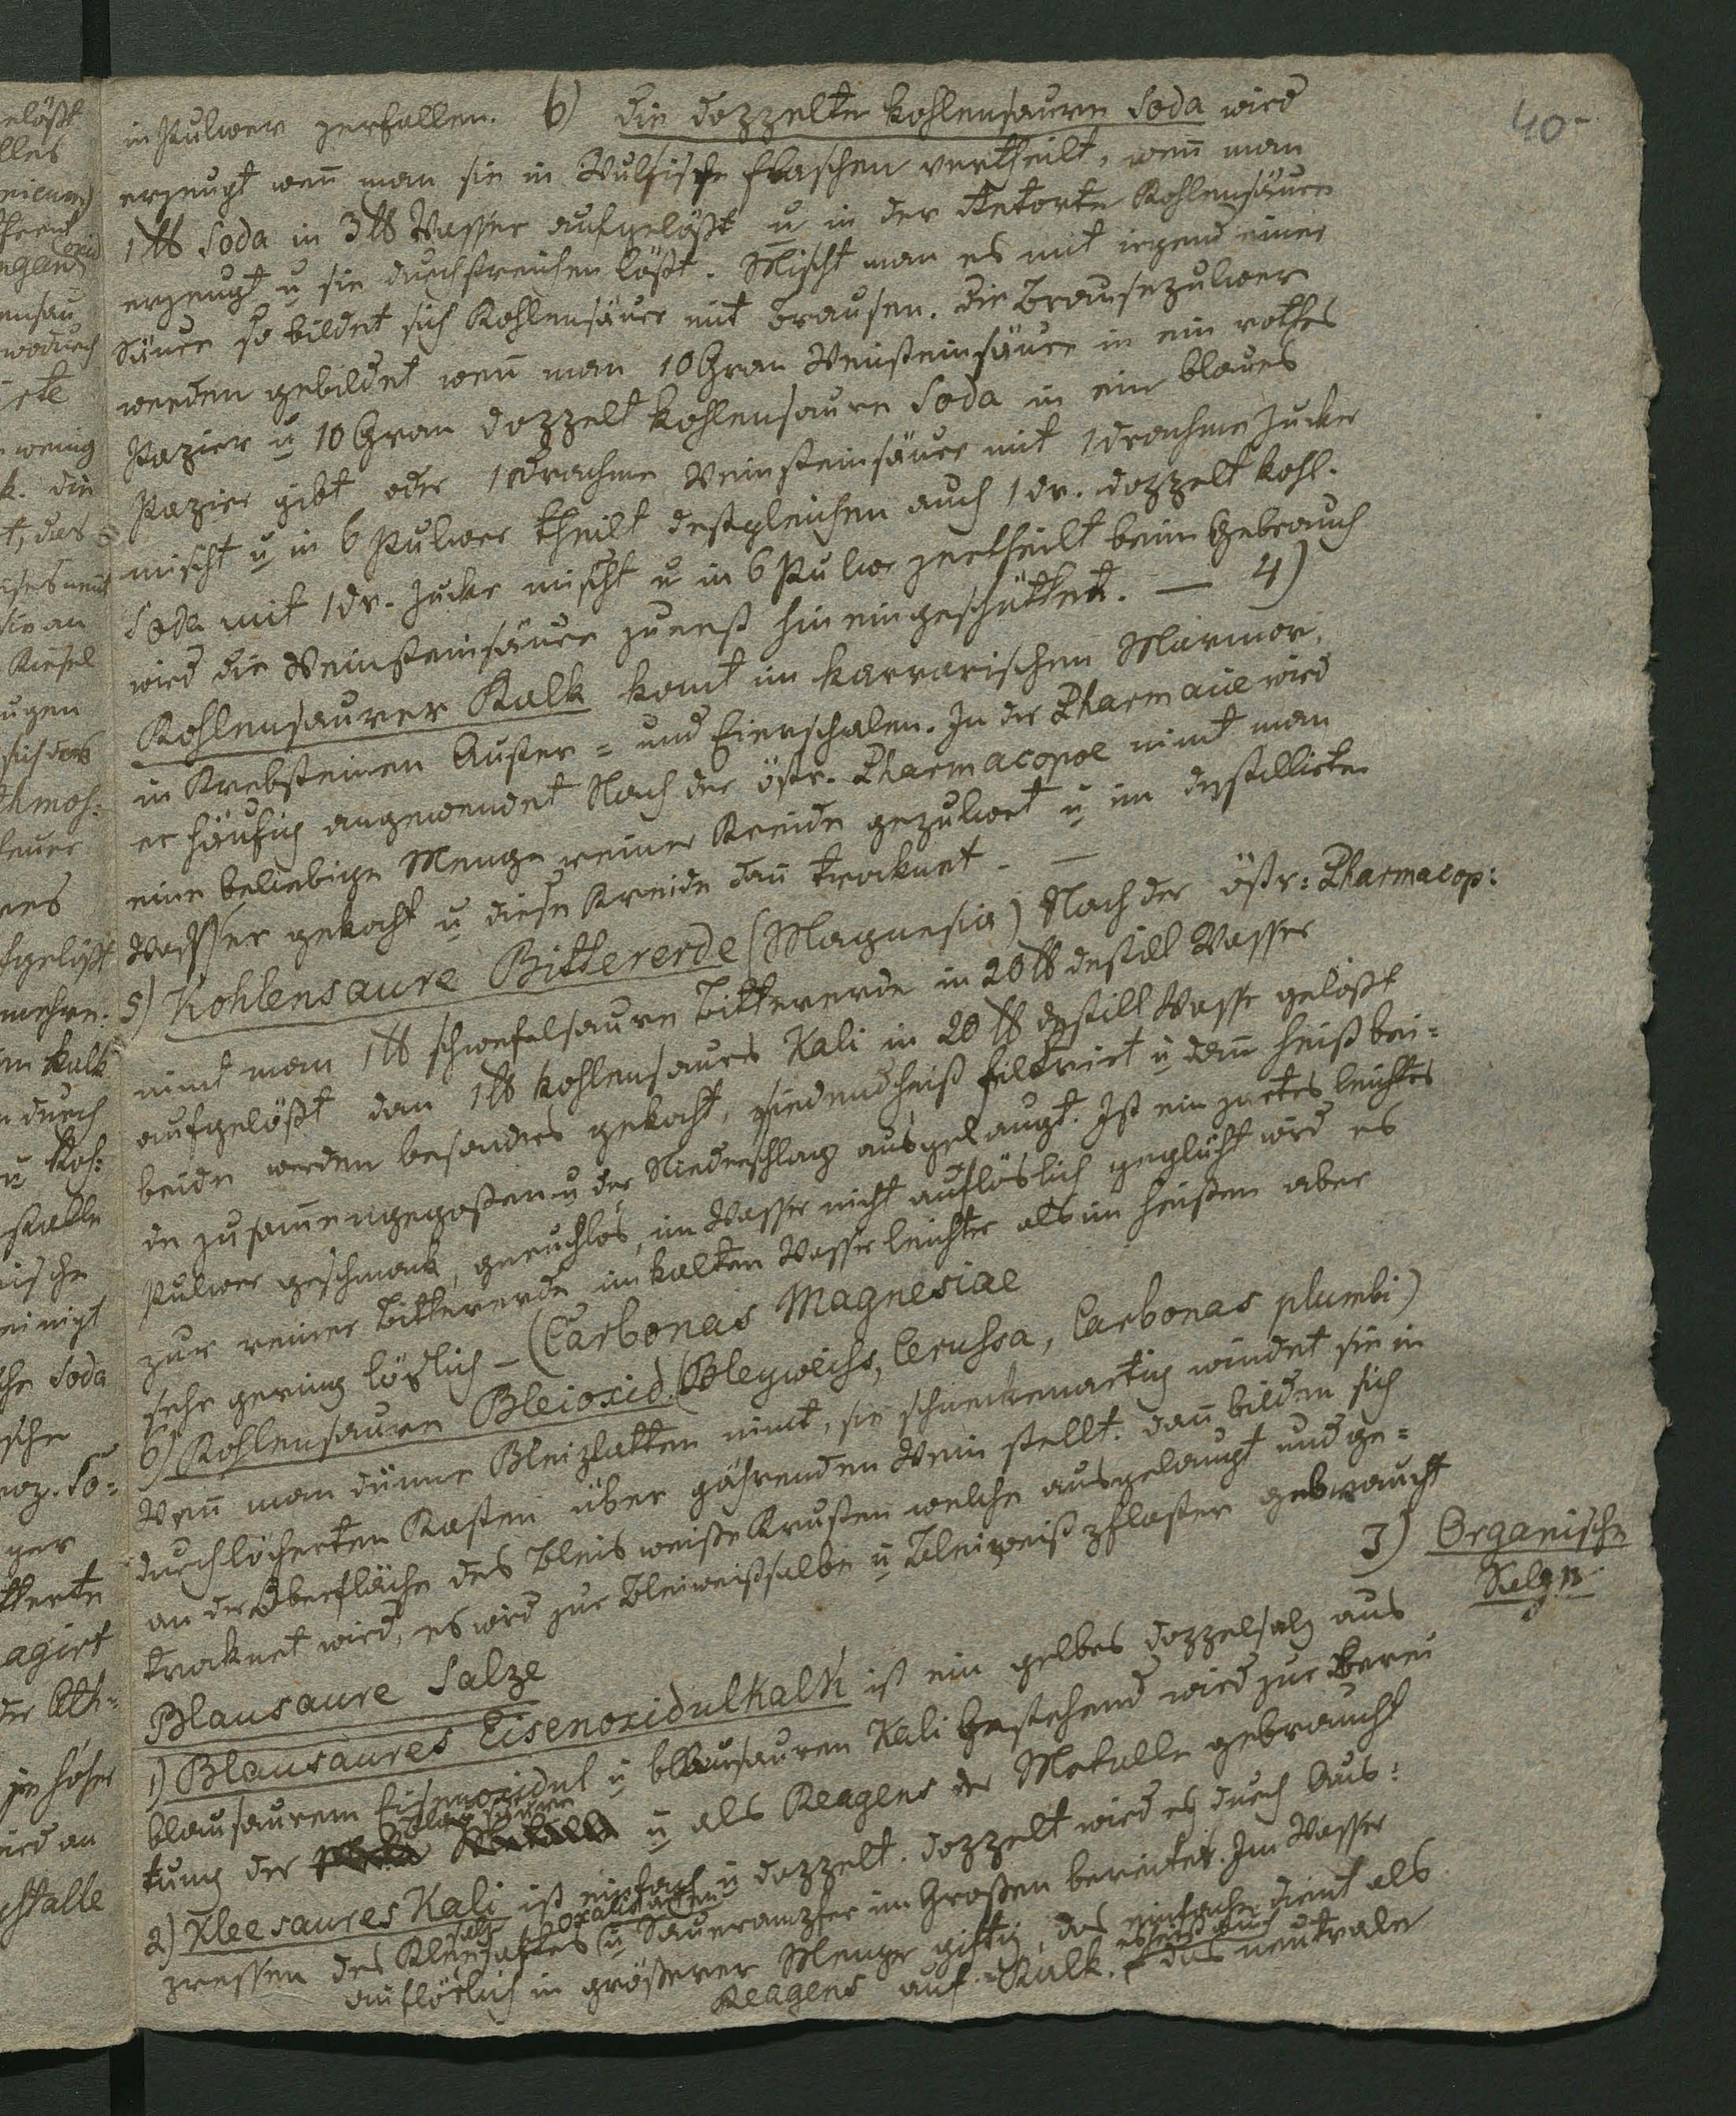 40
in Pulwer zerfallen. b) die doppelte kohlensaure Soda wird
erzeugt weñ man sie in Wulfische Flaschen vertheilt, weñ man
1 ℔ Soda in 3 ℔ Wasser aufgelößt u in der Retorte Kohlensäure
erzeugt u sie durchstreichen läßt. Mischt man es mit irgend einer
Säure so bildet sich Kohlensäure mit Brausen. Die Brausepulwer
werden gebildet weñ man 10 Gran Weinsteinsäure in ein rothes
Papier u 10 Gran doppelt kohlensaure Soda in ein blaues
Papier gibt oder 1 Drachme Weinsteinsäure mit 1 drachme Zucker
mischt u in 6 Pulwer theilt deßgleichen auch 1 dr. doppelt kohl.
Soda mit 1 dr. Zucker mischt u in 6 Pulwer zertheilt beim Gebrauch
wird die Weinsteinsäure zuerst hineingeschüttet. — 4)
Kohlensaurer Kalk komt im karrarischen Marmor,
in Krebsteinen Auster= und Eierschalen. In der Pharmacie wird
er häufig angewendet Nach der östr. Pharmacopoe nimt man
eine beliebige Menge reiner Kreide gepulwert u im destillirten
Wasser gekocht u diese Kreide dañ troknet. —
5) Kohlensaure Bittererde (Magnesia) Nach der östr: Pharmacop:
nimt man 1 ℔ schwefelsaure Bittererde in 20 ℔ destill Wasser
aufgelößt dan 1 ℔ kohlensaures Kali in 20 ℔ destill Wasser gelößt
beide werden besonders gekocht, siedendheiß filtrirt u dañ heiß bei=
de zusam̃engegoßen u der Niederschlag ausgelaugt. Ist ein zartes leichtes
Pulwer geschmack, geruchlos, im Wasser nicht auflöslich geglüht wird es
zur reiner Bittererde im kalten Wasser leichter als im heißen aber
sehr gering löslich – (Carbonas Magnesiae
6) Kohlensaure Bleioxid (Bleyweiss, Cerussa, Carbonas plumbi)
Weñ man dünne Bleiplatten nimt, sie schneckenartig windet sie in
durchlöcherten Kasten über gährenden Wein stellt. dañ bilden sich
an der Oberfläche des Bleis weiße Krusten welche ausgelaugt und ge=
troknet wird, es wird zur Bleiweißsalbe u Bleiweißpflaster gebraucht
3) Organische
Salze
Blausaure Salze
1) Blausaures Eisenoxidulkali ist ein gelbes doppelsalz aus
blausaurem Eisenoxidul u blausauren Kali bestehend wird zur Berei
tung der Blausäure u als Reagens der Metalle gebraucht
2) Kleesaures Kali ist einfach u doppelt. doppelt wird es durch Aus=
pressen des Kleesaftes u Sauerampfer im Großen bereitet. Im Wasser
auflöslich in größerer Menge giftig, das einfache dient als
Reagens auf Kalk. das neutrale